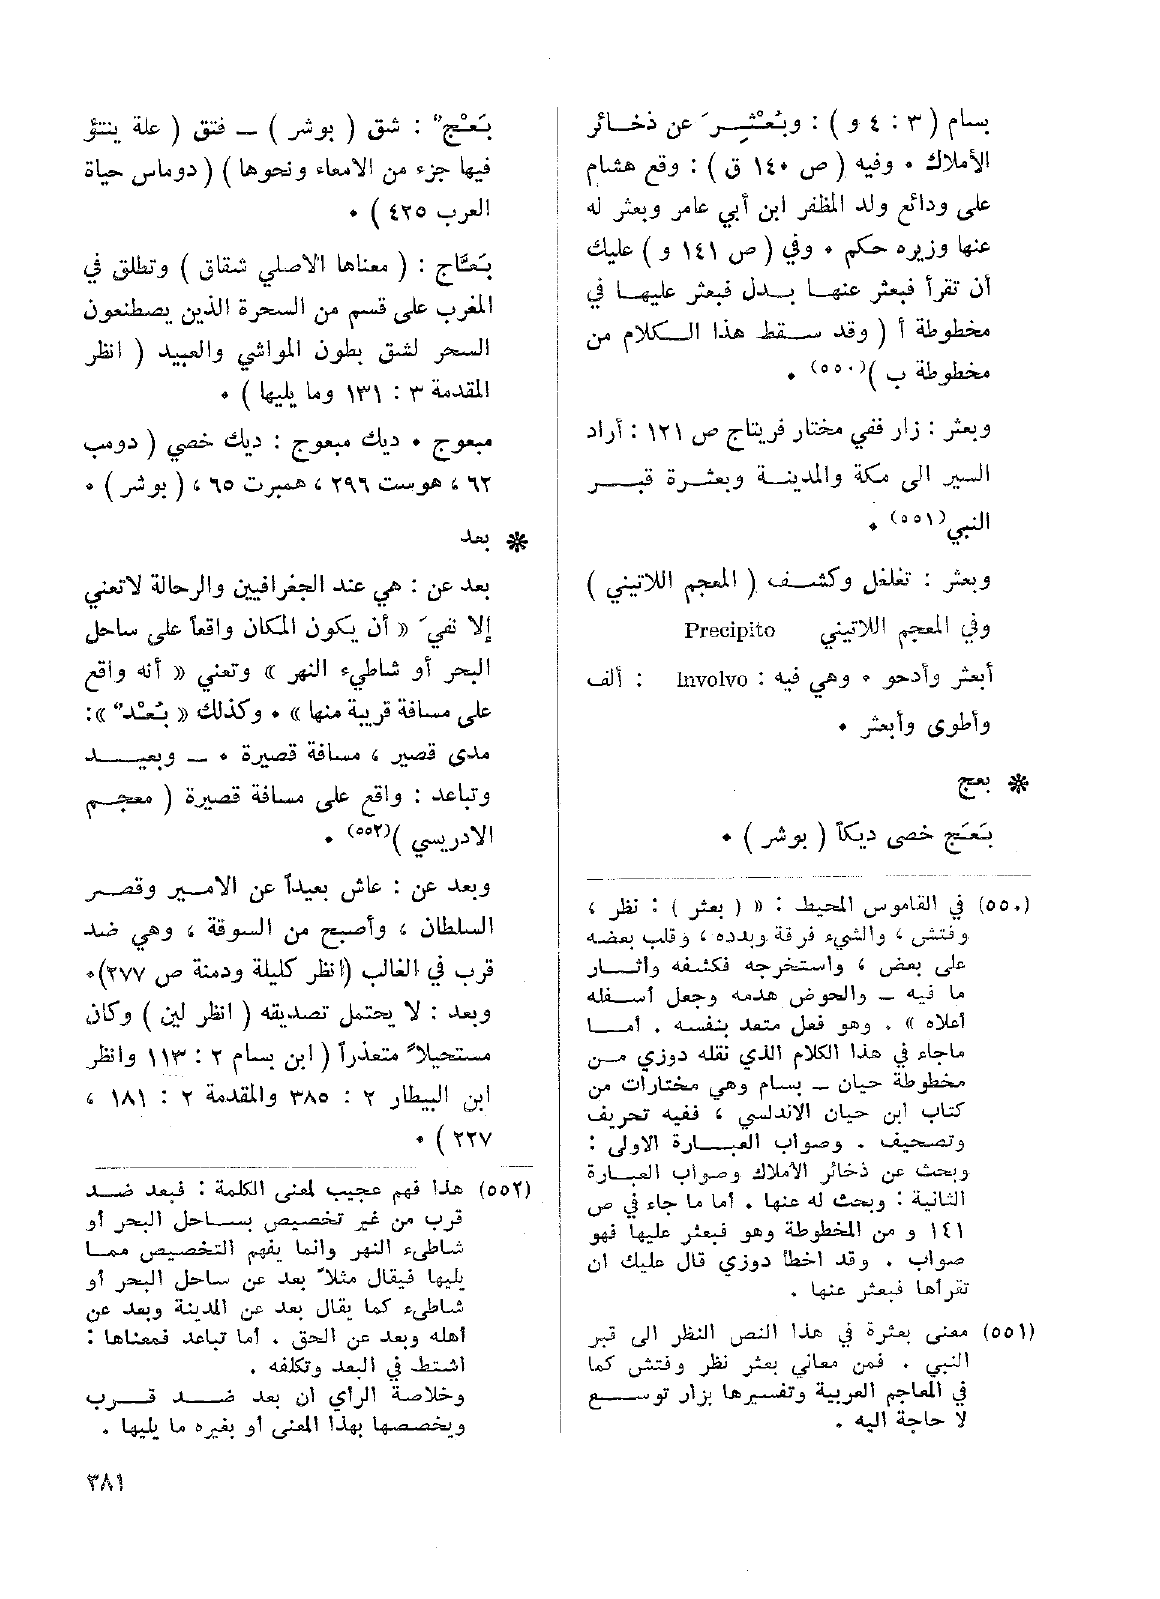 بسام ( ٣ : ٤ و ) : وبُعْثِرَ عن ذخائر
الأملاك ٠ وفيه ( ص ١٤٠ ق ) : وقع هشام
على ودائع ولد المظفر ابن أبي عامر وبعثر له
عنها وزيره حكم ٠ وفي ( ص ١٤١ و ) عليك
أن تقرأ فبعثر عنها بدل فبعثر عليها في
مخطوطة أ ( وقد سقط هذا الكلام من
مخطوطة ب )(٥٥٠) ٠
وبعثر : زار ففي مختار فريتاج ص ١٢١ : أراد
السير الى مكة والمدينة وبعثرة قبر
النبي(٥٥١) ٠
وبعثر : تغلغل وكشف ( المعجم اللاتيني )
وفي المعجم اللاتيني Precipito
أبعثر وأدحو ٠ وهي فيه : Involvo : ألف
وأطوى وأبعثر ٠
❋ بعج
بَعَج خصى ديكاً ( بوشر ) ٠
(٥٥٠) في القاموس المحيط : « ( بعثر ) : نظر ،
وفتش ، والشيء فرقة وبدده ، وقلب بعضه
على بعض ، واستخرجه فكشفه وأثار
ما فيه – والحوض هدمه وجعل أسفله
أعلاه » . وهو فعل متعد بنفسه . أما
ماجاء في هذا الكلام الذي نقله دوزي من
مخطوطة حيان – بسام وهي مختارات من
كتاب ابن حيان الاندلسي ، ففيه تحريف
وتصحيف . وصواب العبارة الاولى :
وبحث عن ذخائر الأملاك وصواب العبارة
الثانية : وبحث له عنها . أما ما جاء في ص
١٤١ و من المخطوطة وهو فبعثر عليها فهو
صواب . وقد اخطأ دوزي قال عليك ان
تقرأها فبعثر عنها .
(٥٥١) معنى بعثرة في هذا النص النظر الى قبر
النبي . فمن معاني بعثر نظر وفتش كما
في المعاجم العربية وتفسيرها بزار توسع
لا حاجة اليه .
بَعْجٌ : شق ( بوشر ) – فتق ( علة ينتؤ
فيها جزء من الامعاء ونحوها ) ( دوماس حياة
العرب ٤٢٥ ) ٠
بَعَّاج : ( معناها الاصلي شقاق ) وتطلق في
المغرب على قسم من السحرة الذين يصطنعون
السحر لشق بطون المواشي والعبيد ( انظر
المقدمة ٣ : ١٣١ وما يليها ) ٠
مبعوج ٠ ديك مبعوج : ديك خصي ( دومب
٦٢ ، هوست ٢٩٦ ، همبرت ٦٥ ، ( بوشر ) ٠
❋ بعد
بعد عن : هي عند الجغرافيين والرحالة لاتعني
إلا نفيَ « أن يكون المكان واقعاً على ساحل
البحر أو شاطيء النهر » وتعني « أنه واقع
على مسافة قريبة منها » ٠ وكذلك « بُعْدٌ » :
مدى قصير ، مسافة قصيرة ٠ – وبعيد
وتباعد : واقع على مسافة قصيرة ( معجم
الادريسي )(٥٥٢) ٠
وبعد عن : عاش بعيداً عن الامير وقصر
السلطان ، وأصبح من السوقة ، وهي ضد
قرب في الغالب (انظر كليلة ودمنة ص ٢٧٧)٠
وبعد : لا يحتمل تصديقه ( انظر لين ) وكان
مستحيلاً متعذراً ( ابن بسام ٢ : ١١٣ وانظر
ابن البيطار ٢ : ٣٨٥ والمقدمة ٢ : ١٨١ ،
٢٢٧ ) ٠
(٥٥٢) هذا فهم عجيب لمعنى الكلمة : فبعد ضد
قرب من غير تخصيص بساحل البحر أو
شاطيء النهر وانما يفهم التخصيص مما
يليها فيقال مثلاً بعد عن ساحل البحر أو
شاطيء كما يقال بعد عن المدينة وبعد عن
أهله وبعد عن الحق . أما تباعد فمعناها :
اشتط في البعد وتكلفه .
وخلاصة الرأي ان بعد ضد قرب
ويخصصها بهذا المعنى أو بغيره ما يليها .
٣٨١